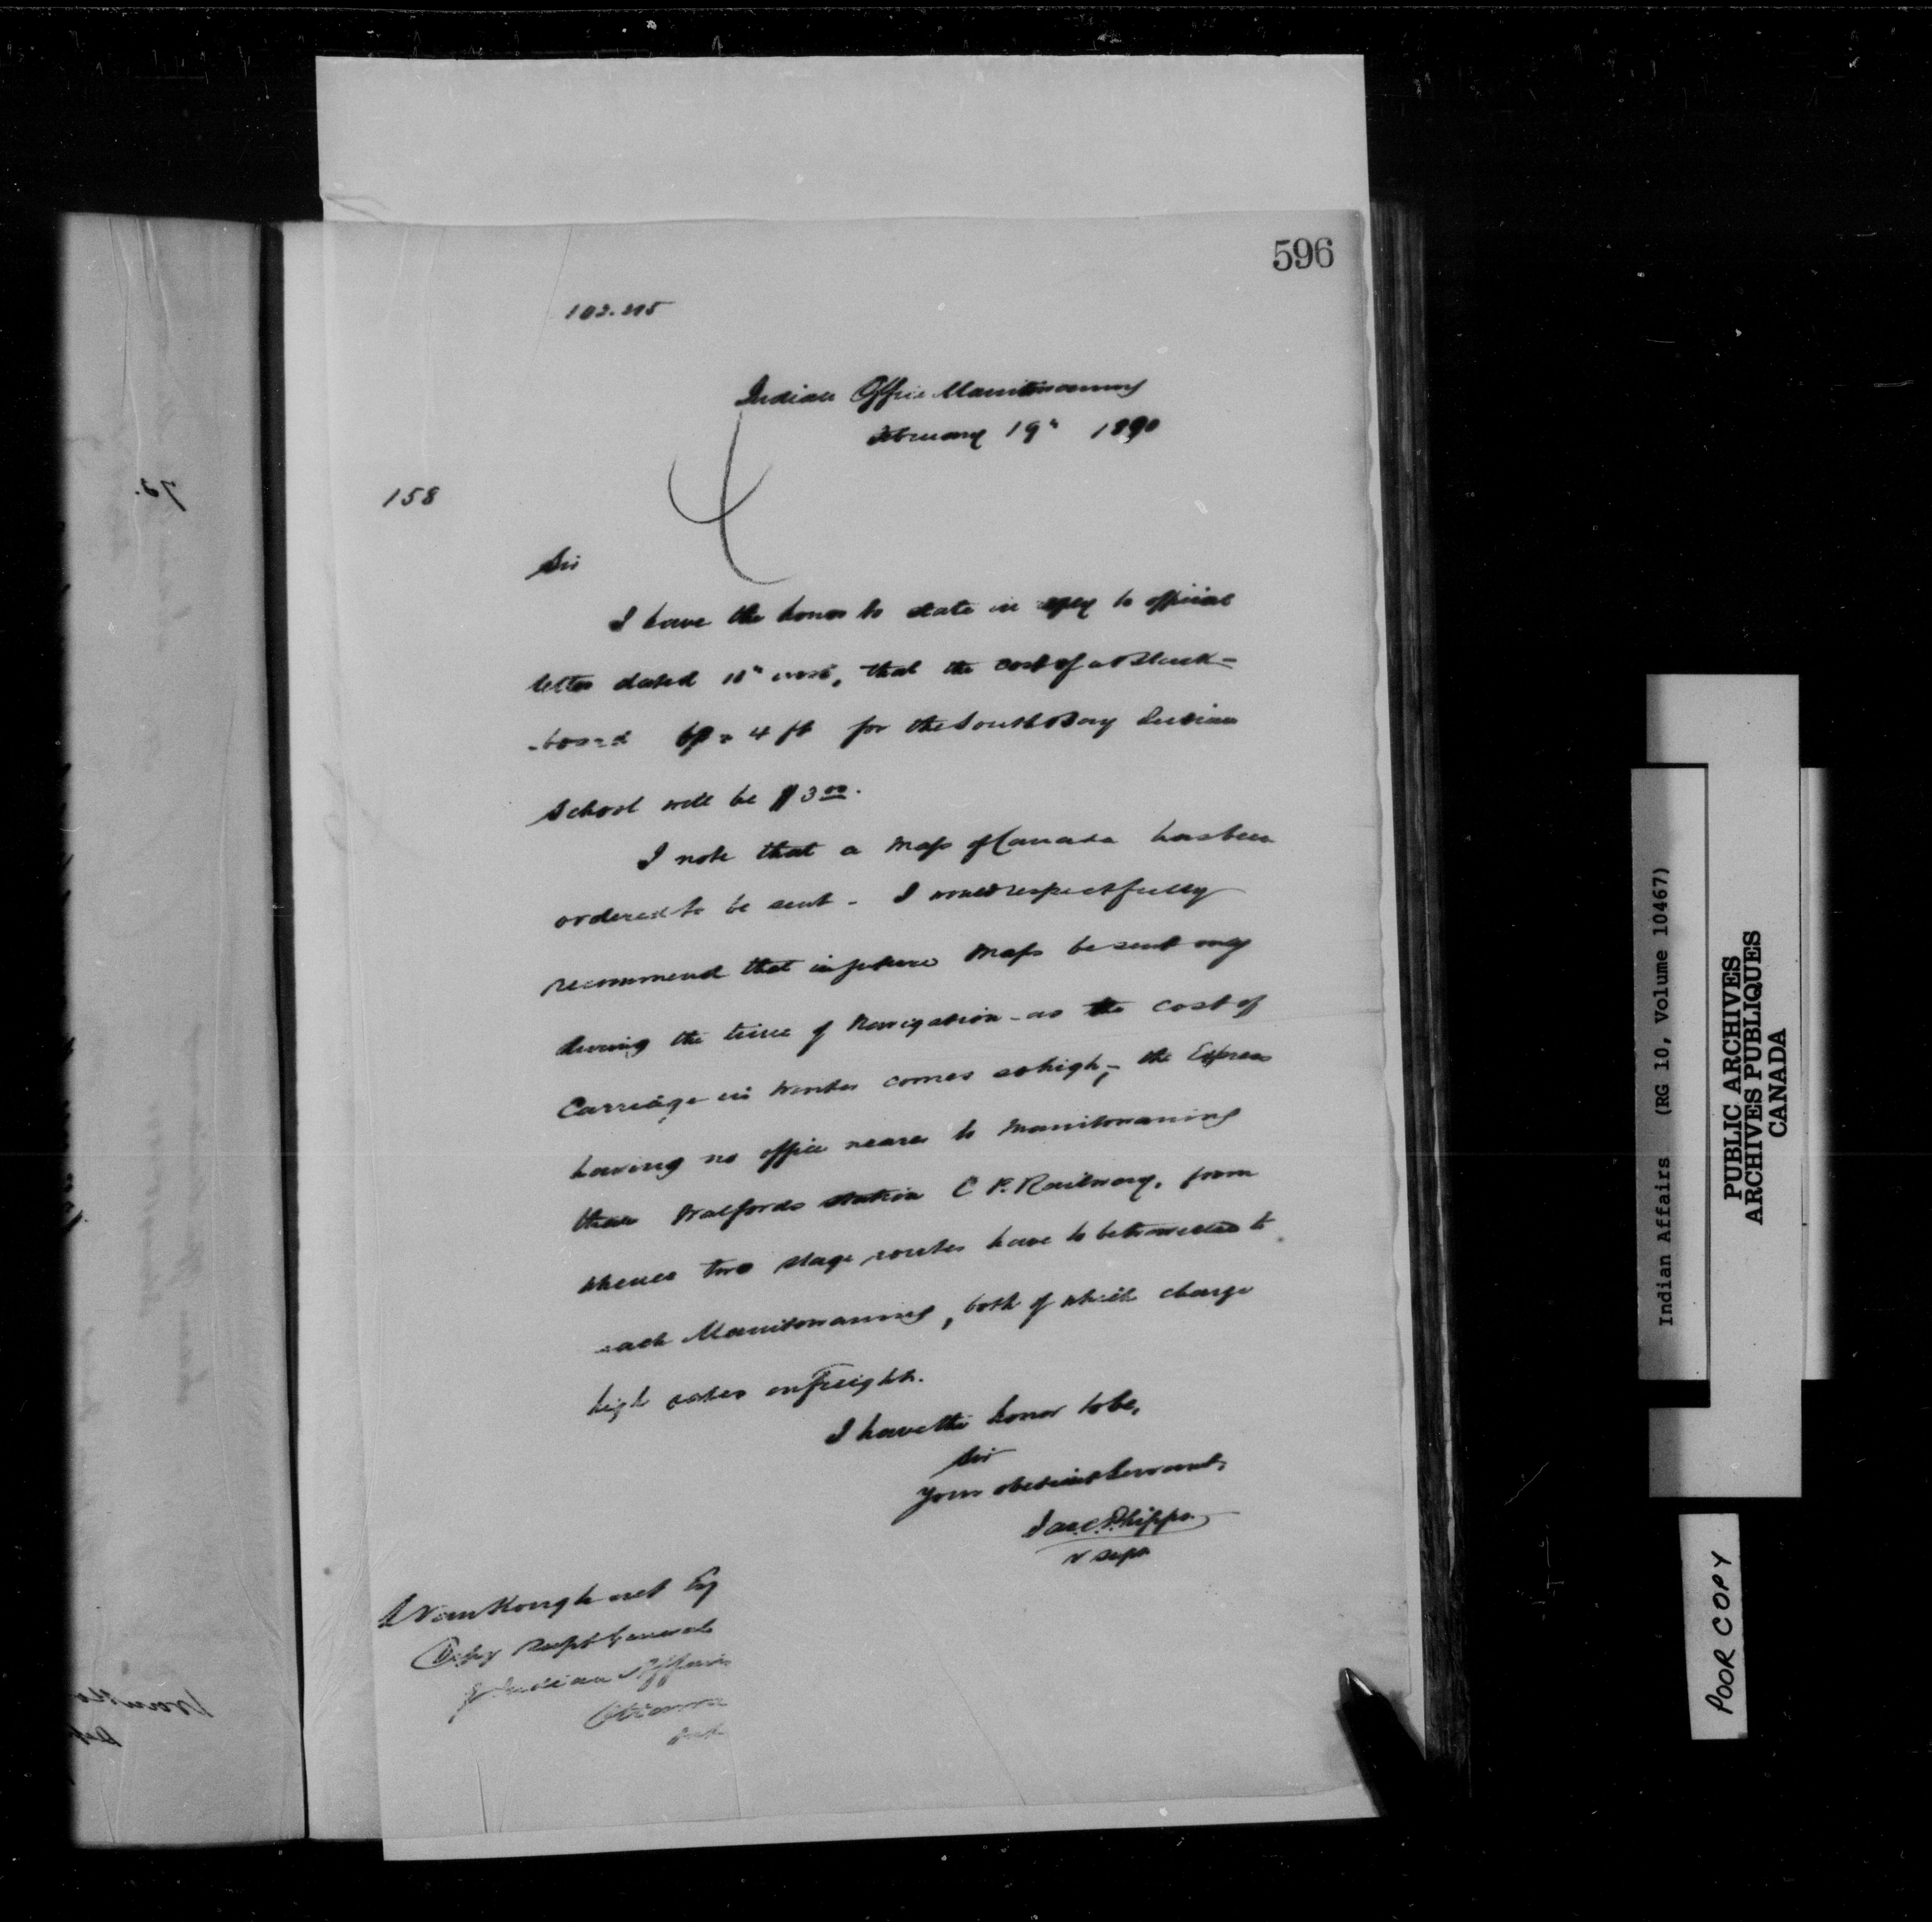 596
102.215
Indian Office Manitowaning
February 19" 1890
158
Sir
I have the honor to state in reply to official
letter dated 10" inst, that the cost of a Black-
-board 6 x 4 ft for the South Bay Indian
School will be $3 00.
I note that a Map of Canada has been
ordered to be sent - I would respectfully
recommend that in future Maps be sent only
during the time of Navigation - as the cost of
Carriage in Winter comes so high, - the Express
having no office nearer to Manitowaning
than Walfords station C P. Railway, from
whence two stage routes have to be travelled to
reach Manitowaning, both of which charge
high rates on Freight.
I have the honor to be,
Sir
Your obedient Servant,
Jas. C. Phipps
V Supt
L VanKoughnet Esq
Depy Supt General
of Indian Affairs
Ottawa
Indian Affairs (RG 10, Volume 10467)
PUBLIC ARCHIVES
ARCHIVES PUBLIQUES
CANADA
POOR COPY